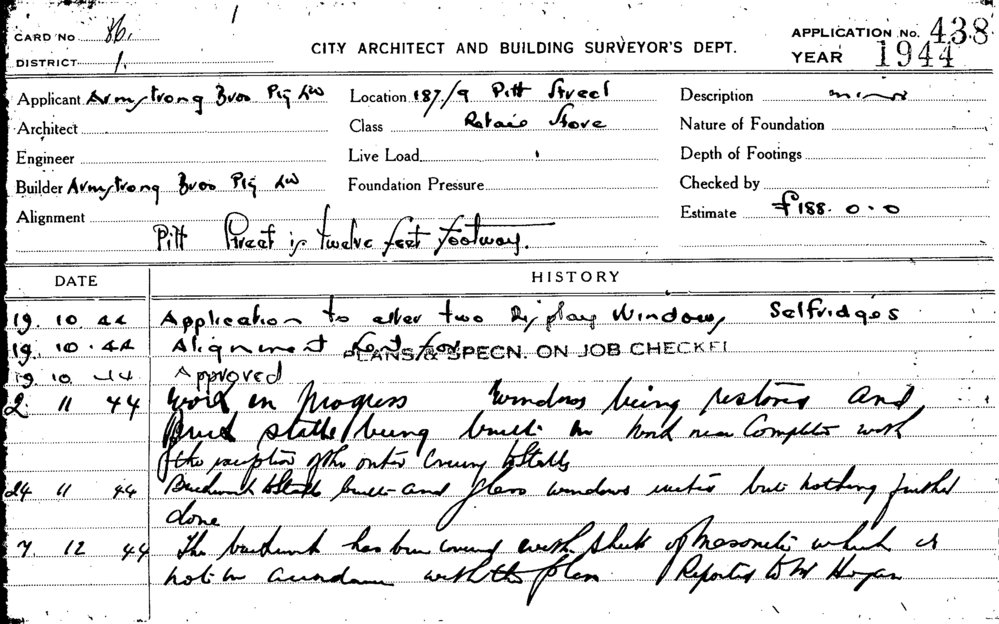 CARD No 86.
DISTRICT 1.
CITY ARCHITECT AND BUILDING SURVEYOR'S DEPT.
APPLICATION No. 438
YEAR 1944
Applicant Armstrong Bros Pty Ltd
Location 187/9 Pitt Street
Description minor
Architect
Class Retail Store
Nature of Foundation
Engineer
Live Load
Depth of Footings
Builder Armstrong Bros Pty Ltd
Foundation Pressure
Checked by
Alignment
Estimate £188.0.0
Pitt Street is twelve feet footway.
DATE HISTORY
19. 10. 44 Application to alter two Display Windows, Selfridges
19. 10. 44 Alignment sent for
PLANS & SPECN. ON JOB CHECKED
19 10 44 Approved
2 11 44 Work in progress windows being restored and
Brick stalls being built in work near Complete with
the exception of the outer Covering to Stalls
24 11 44 Brickwork to Stalls built and glass windows but nothing further
done
7. 12 44 The brickwork has been covered with Sheets of Masonite which is
not in accordance with the plan Reported to Mr Hogan